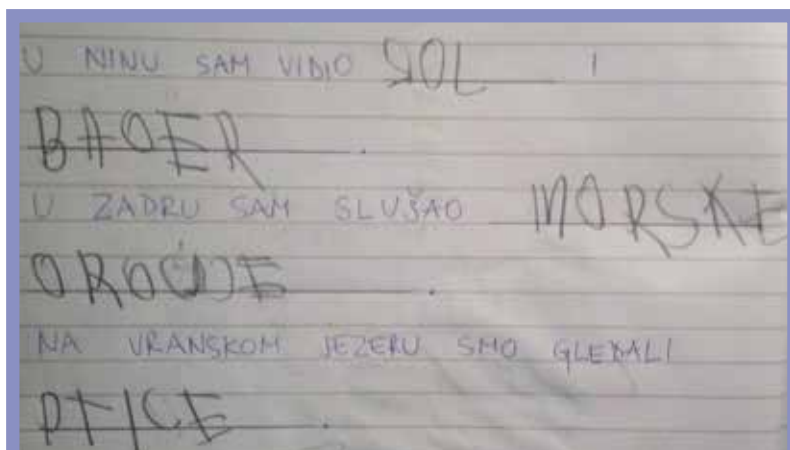 U NINU SAM VIDIO SOL I
BAGER.
U ZADRU SAM SLUŠAO MORSKE
ORGULJE.
NA VRANSKOM JEZERU SMO GLEDALI
PTICE.